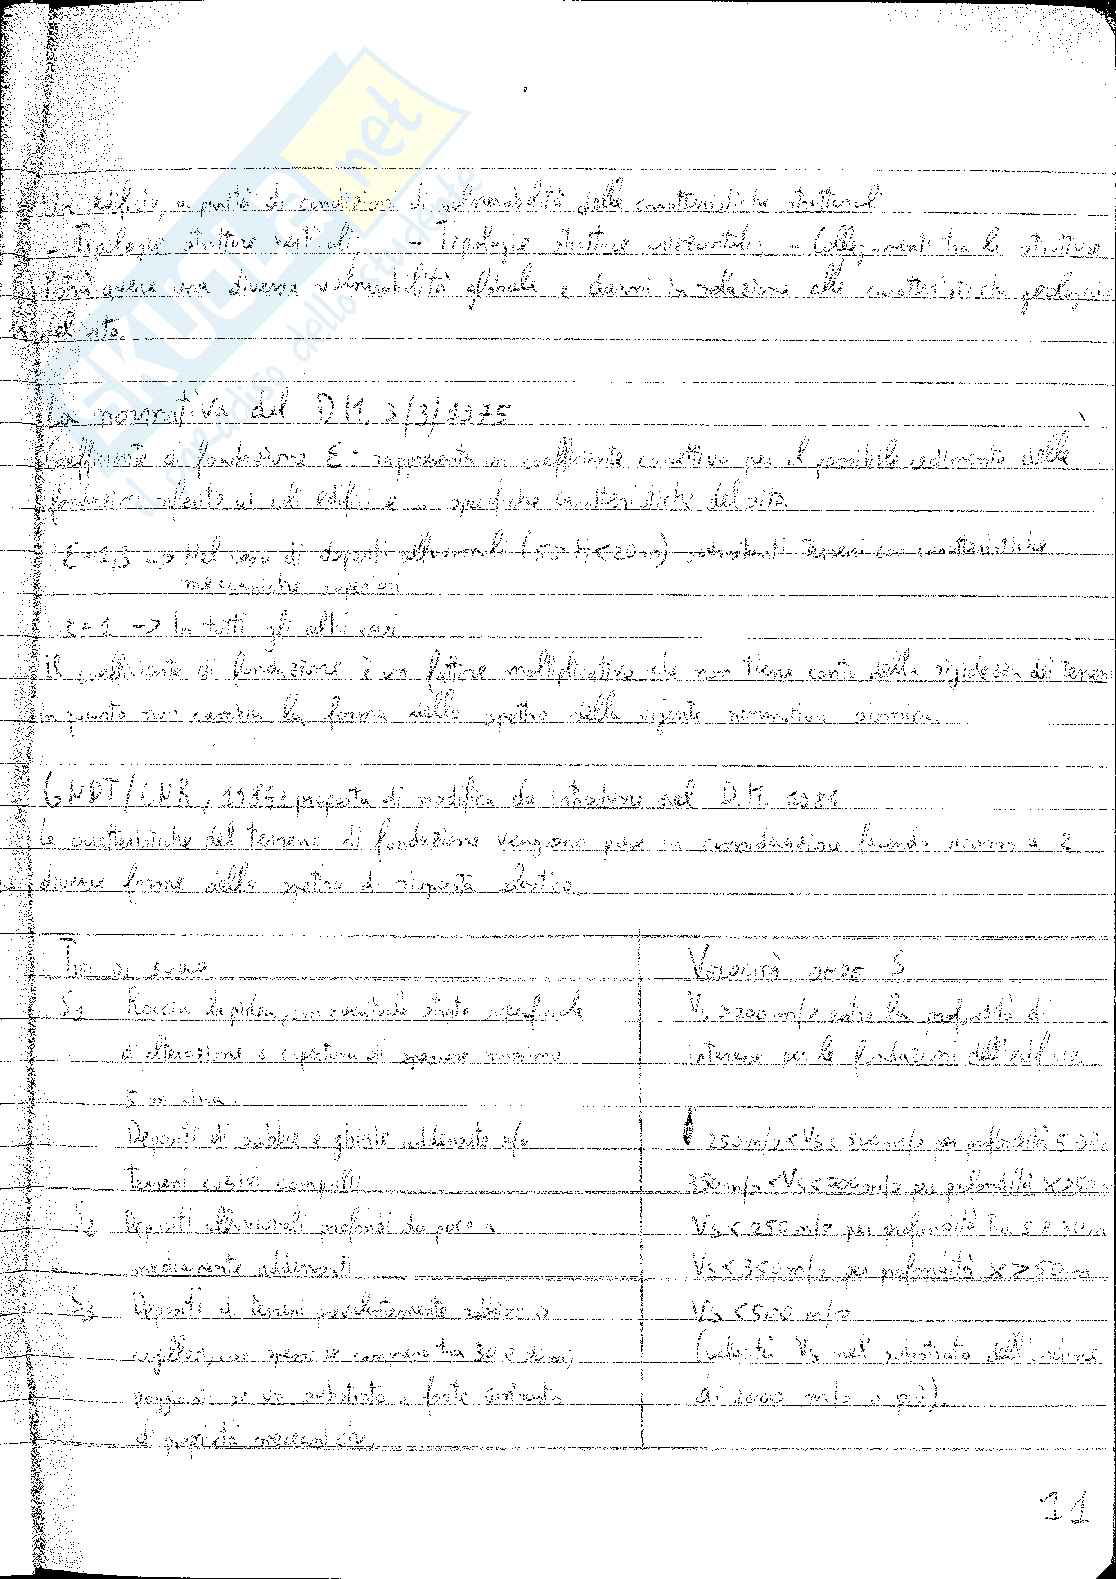 Un edificio, a parità di condizioni di vulnerabilità delle caratteristiche strutturali
- Tipologie strutture verticali; - Tipologie strutture orizzontali; - Collegamenti tra le strutture
potrà avere una diversa vulnerabilità globale e danni in relazione alle caratteristiche geologiche
del sito.
La normativa del D.M. 3/3/1975
Coefficiente di fondazione ε: rappresenta un coefficiente correttivo per il possibile cedimento delle
fondazioni specifiche caratteristiche del sito
ε=1,3 -> Nel caso di depositi alluvionali (5<H<20m) sovrastanti terreni con caratteristiche
meccaniche superiori
ε=1 -> In tutti gli altri casi
Il coefficiente di fondazione è un fattore moltiplicativo che non tiene conto della rigidezza del terreno
in quanto non cambia la forma dello spettro della vigente normativa sismica.
GNDT/CNR, 1985: proposta di modifica da introdurre nel D.M.
Le caratteristiche del terreno di fondazione vengono prese in considerazione facendo ricorso a 2
diverse forme dello spettro di risposta elastico.
Tipo di suolo Velocità onde S
S1 Roccia lapidea, con eventuale strato superficiale
di alterazione o copertura di spessore massimo
5 m circa.
Vs > 700 m/s entro la profondità di
interesse per le fondazioni dell'edificio
Depositi di sabbie e ghiaie addensate e/o
terreni coesivi compatti
250 m/s < Vs < 800 m/s per profondità
350 m/s < Vs < 700 m/s per profondità
S2 Depositi alluvionali profondi da poco a
mediamente addensati
Vs < 250 m/s per profondità tra 5 e 30 m
Vs < 350 m/s per profondità x > 50 m
S3 Depositi di terreni prevalentemente sabbiosi o
argillosi, con spessore compreso tra
poggianti su un substrato a forte contrasto
di proprietà meccaniche.
Vs < 500 m/s
(velocità Vs nel substrato dell'ordine
di 1000 m/s o più).
11
skuola.net
il paradiso dello studente